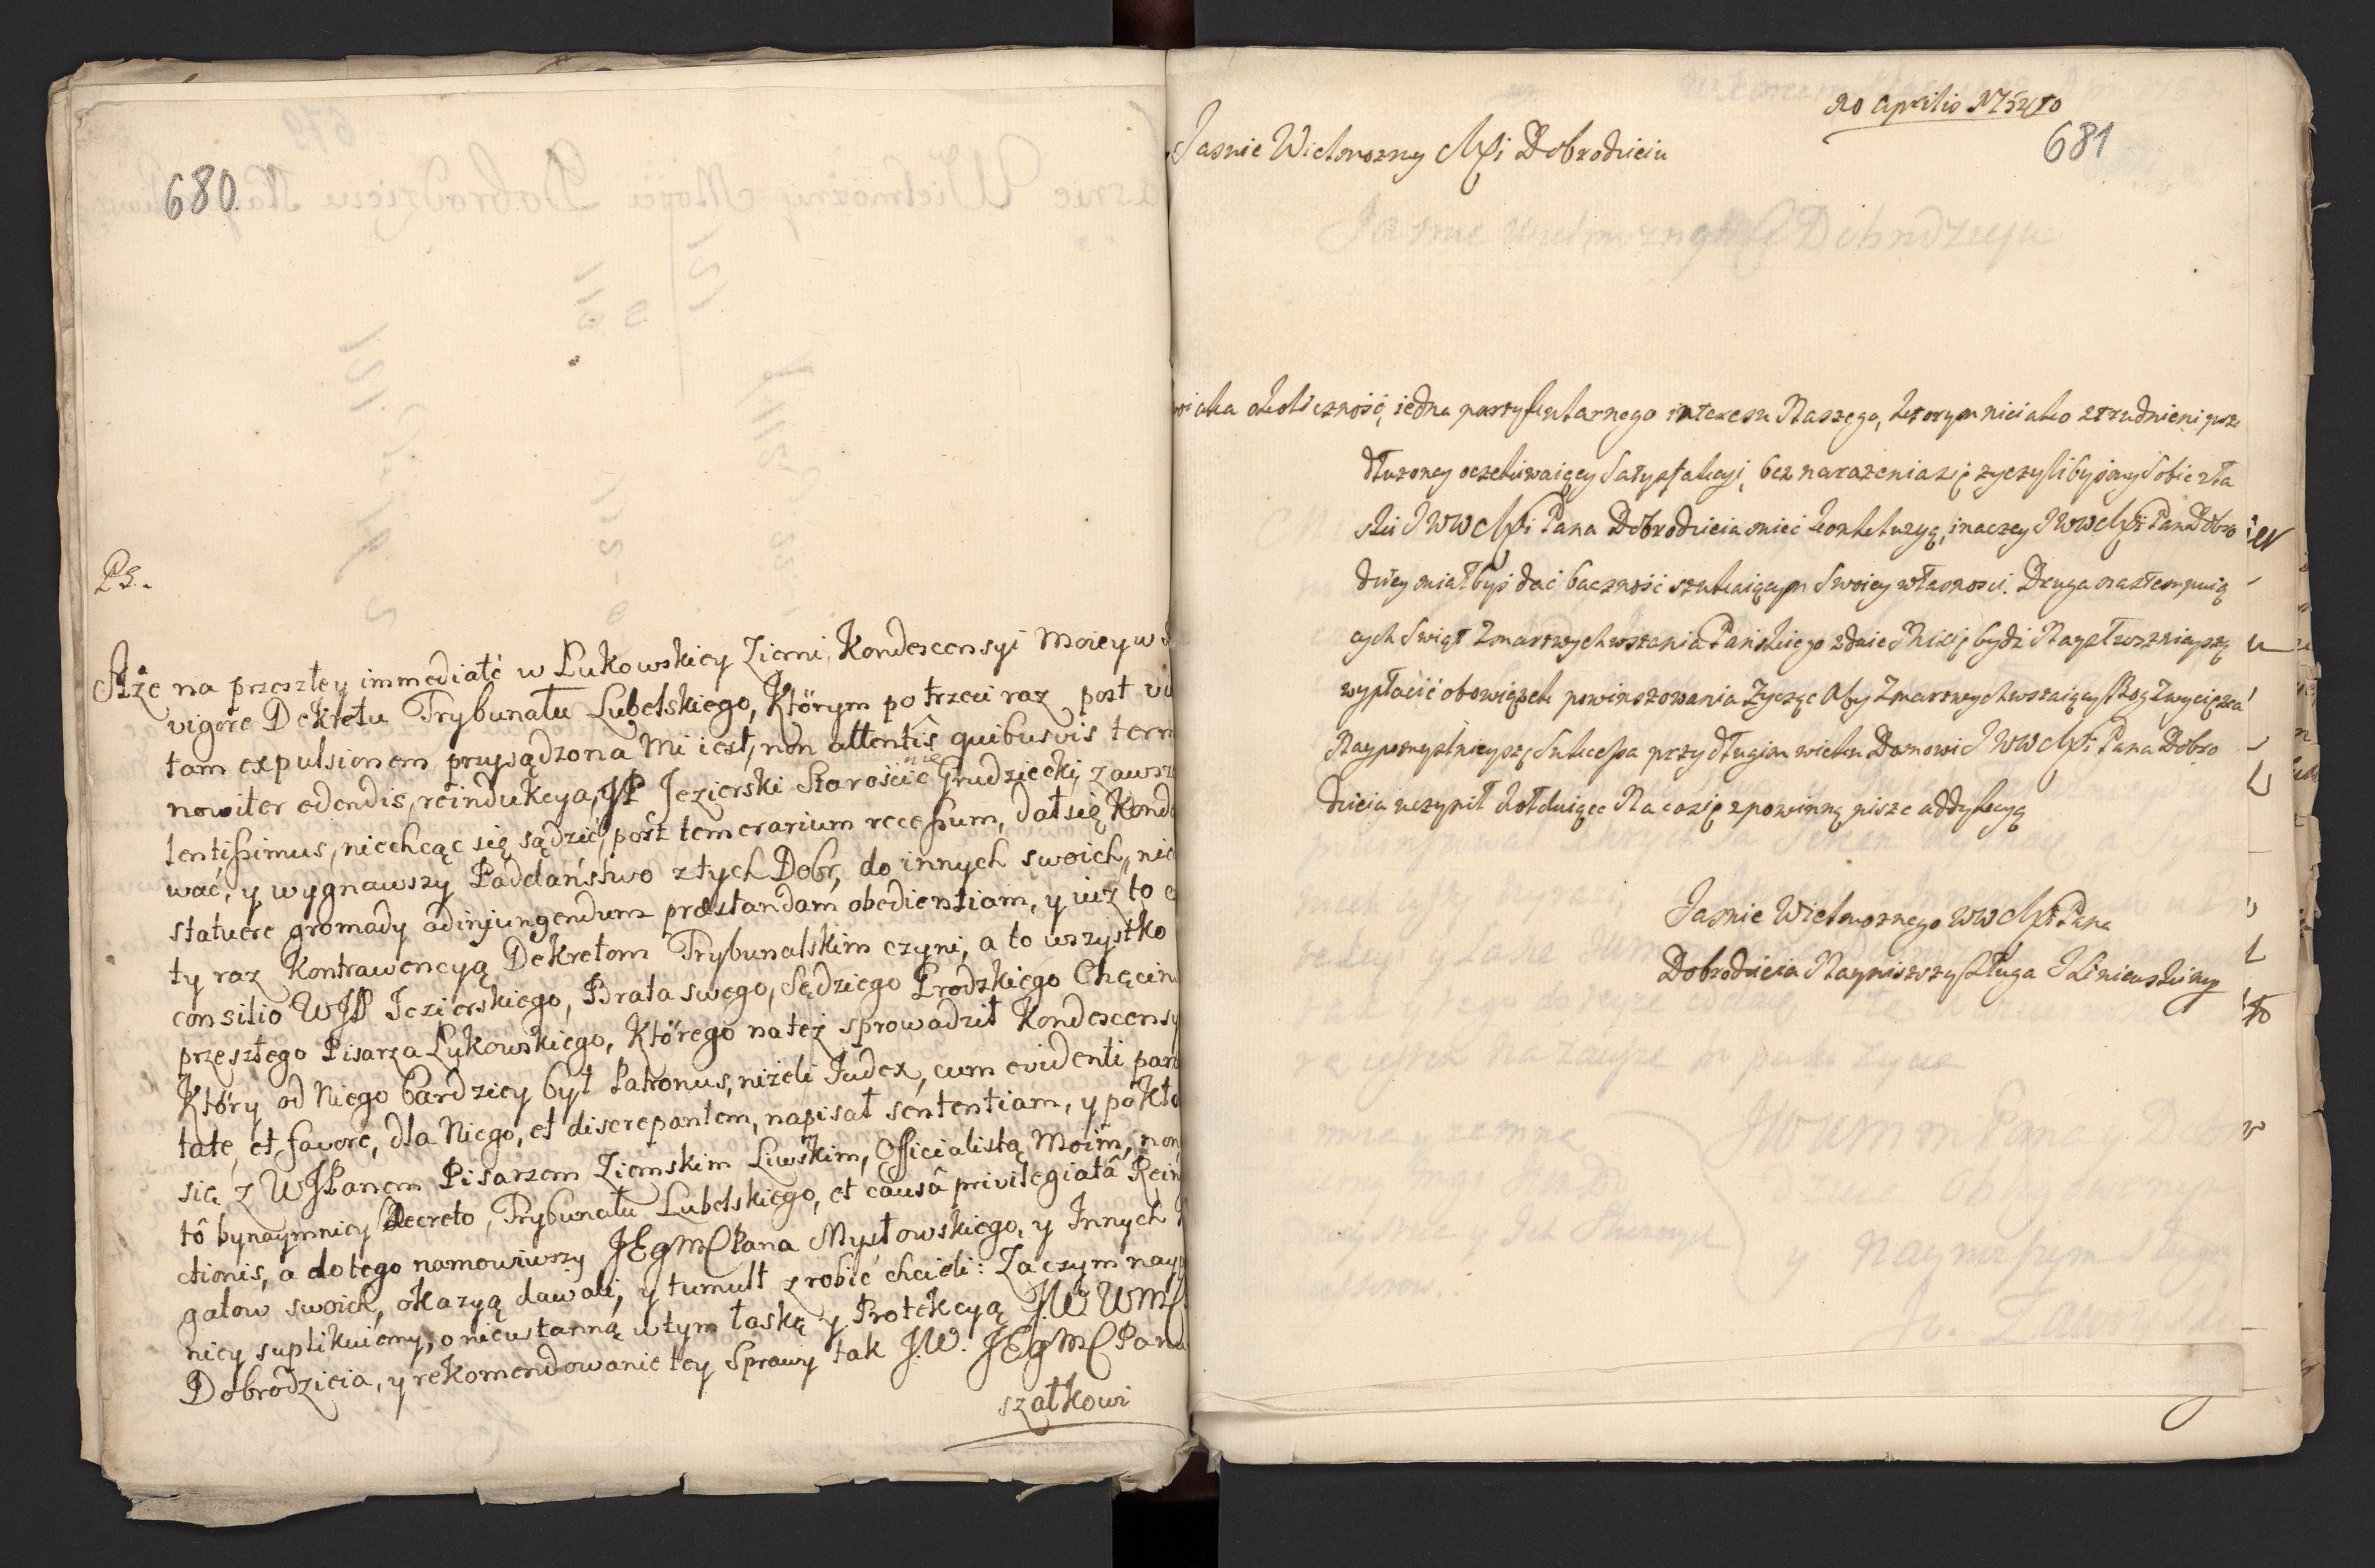 680
PS.
Aże na przeszłey immediatè w Łukowskiey Ziemi, Kondescensyi Moiey w
vigore Dekretu Trybunału Lubelskiego, Którym po trzeci raz post
tam expulsionem przysądzona Mi iest, non attentis quibusvis
noviter edendis, reindukcya, JP Jezierski Starościc Grudziecki, zawsz
tentissimus, niechcąc się sądzić, post temerarium recessum, dał się
wać, y wygnawszy Paddaństwo z tych Dobr, do innych swoich, nie
statuere gromady ad injungendum præstandam obedientiam, y iuż to
ty raz Kontrawencyą Dekretom Trybunalskim czyni, a to wszystko
consilio WJP Jezierskiego, Brata swego, Sędziego Grodzkiego
przeszłego Pisarza Łukowskiego, Którego na też sprowadził Kondescensy
Który od Niego bardziey był Patronus, niżeli Judex, cum evidenti
tate, et favore, dla Niego, et discrepantem, napisał sententiam, y
się z WJPanem Pisarzem Ziemskim Liwskim, Officialistą Moim, non
tô bynaymniey Decreto, Trybunału Lubelskiego, et causâ privilegiatâ
ctionis, a do tego namowiwszy JEgMC Pana Mysłowskiego, y Innych
gatow swoich, okazyą dawali, y tumult zrobić chcieli: Zaczym
niey suplikuiemy, o nieustanną w tym łaskę y Protekcyą J.W. WMC
Dobrodzieia, y rekomendowanie tey Sprawy tak J.W. JEgMC Pana
szałkowi
20 Aprilis
681
Jasnie Wielmozny Mźi Dobrodzieiu
okoliczność, iedna partykularnego interesu Naszego, ktorym nieiako
dłuzoney oczekiwaiący Satysfakcyi, bez narażenia się zyczylibysmy Sobie z ła
ski JWWMPi Pana Dobrodzieia mieć konkluzyą, inaczey JWWMPi Pan Dobro
dziey miałbyś dać baczność szukaiącym Swoiey własnosci. Druga nastempuią
cych Swiąt Zmartwychwstania Pańskiego zdaie Mi się bydź
wypłacić obowiązek powinszowania Zycząc Aby Zmartwychwstaiący Bog Zwycięzca
Naypomyslnieysze Sukcessa przy długim wieku Domowi JWWMPi Pana Dobro
dzieia uczynił Na co się z powinną pisze addykcyą
Jasnie Wielmoznego WWMPi Pana
Dobrodzieia Naynizszy Sługa